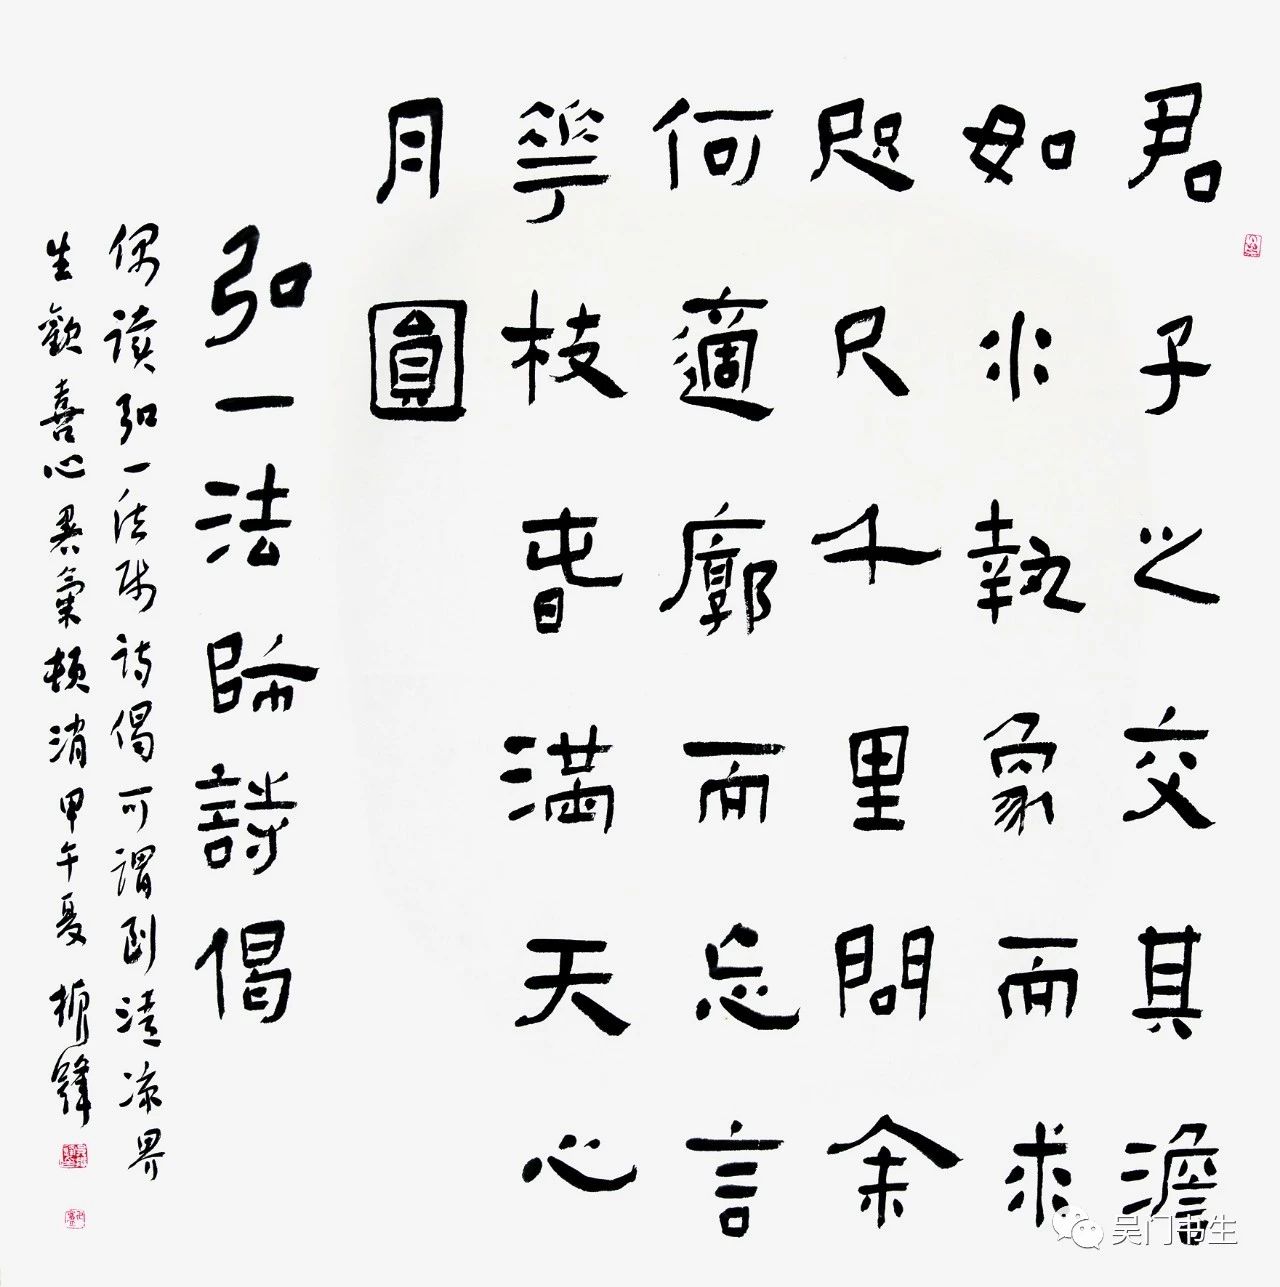 君子之交其澹
如水執象而求
咫尺千里問余
何適廓而忘言
華枝春滿天心
月圓
弘一法師詩偈
偶读弘一法师诗偈可谓到清凉界
生歡喜心暑氣頓消甲午夏柳鋒
吴门书生